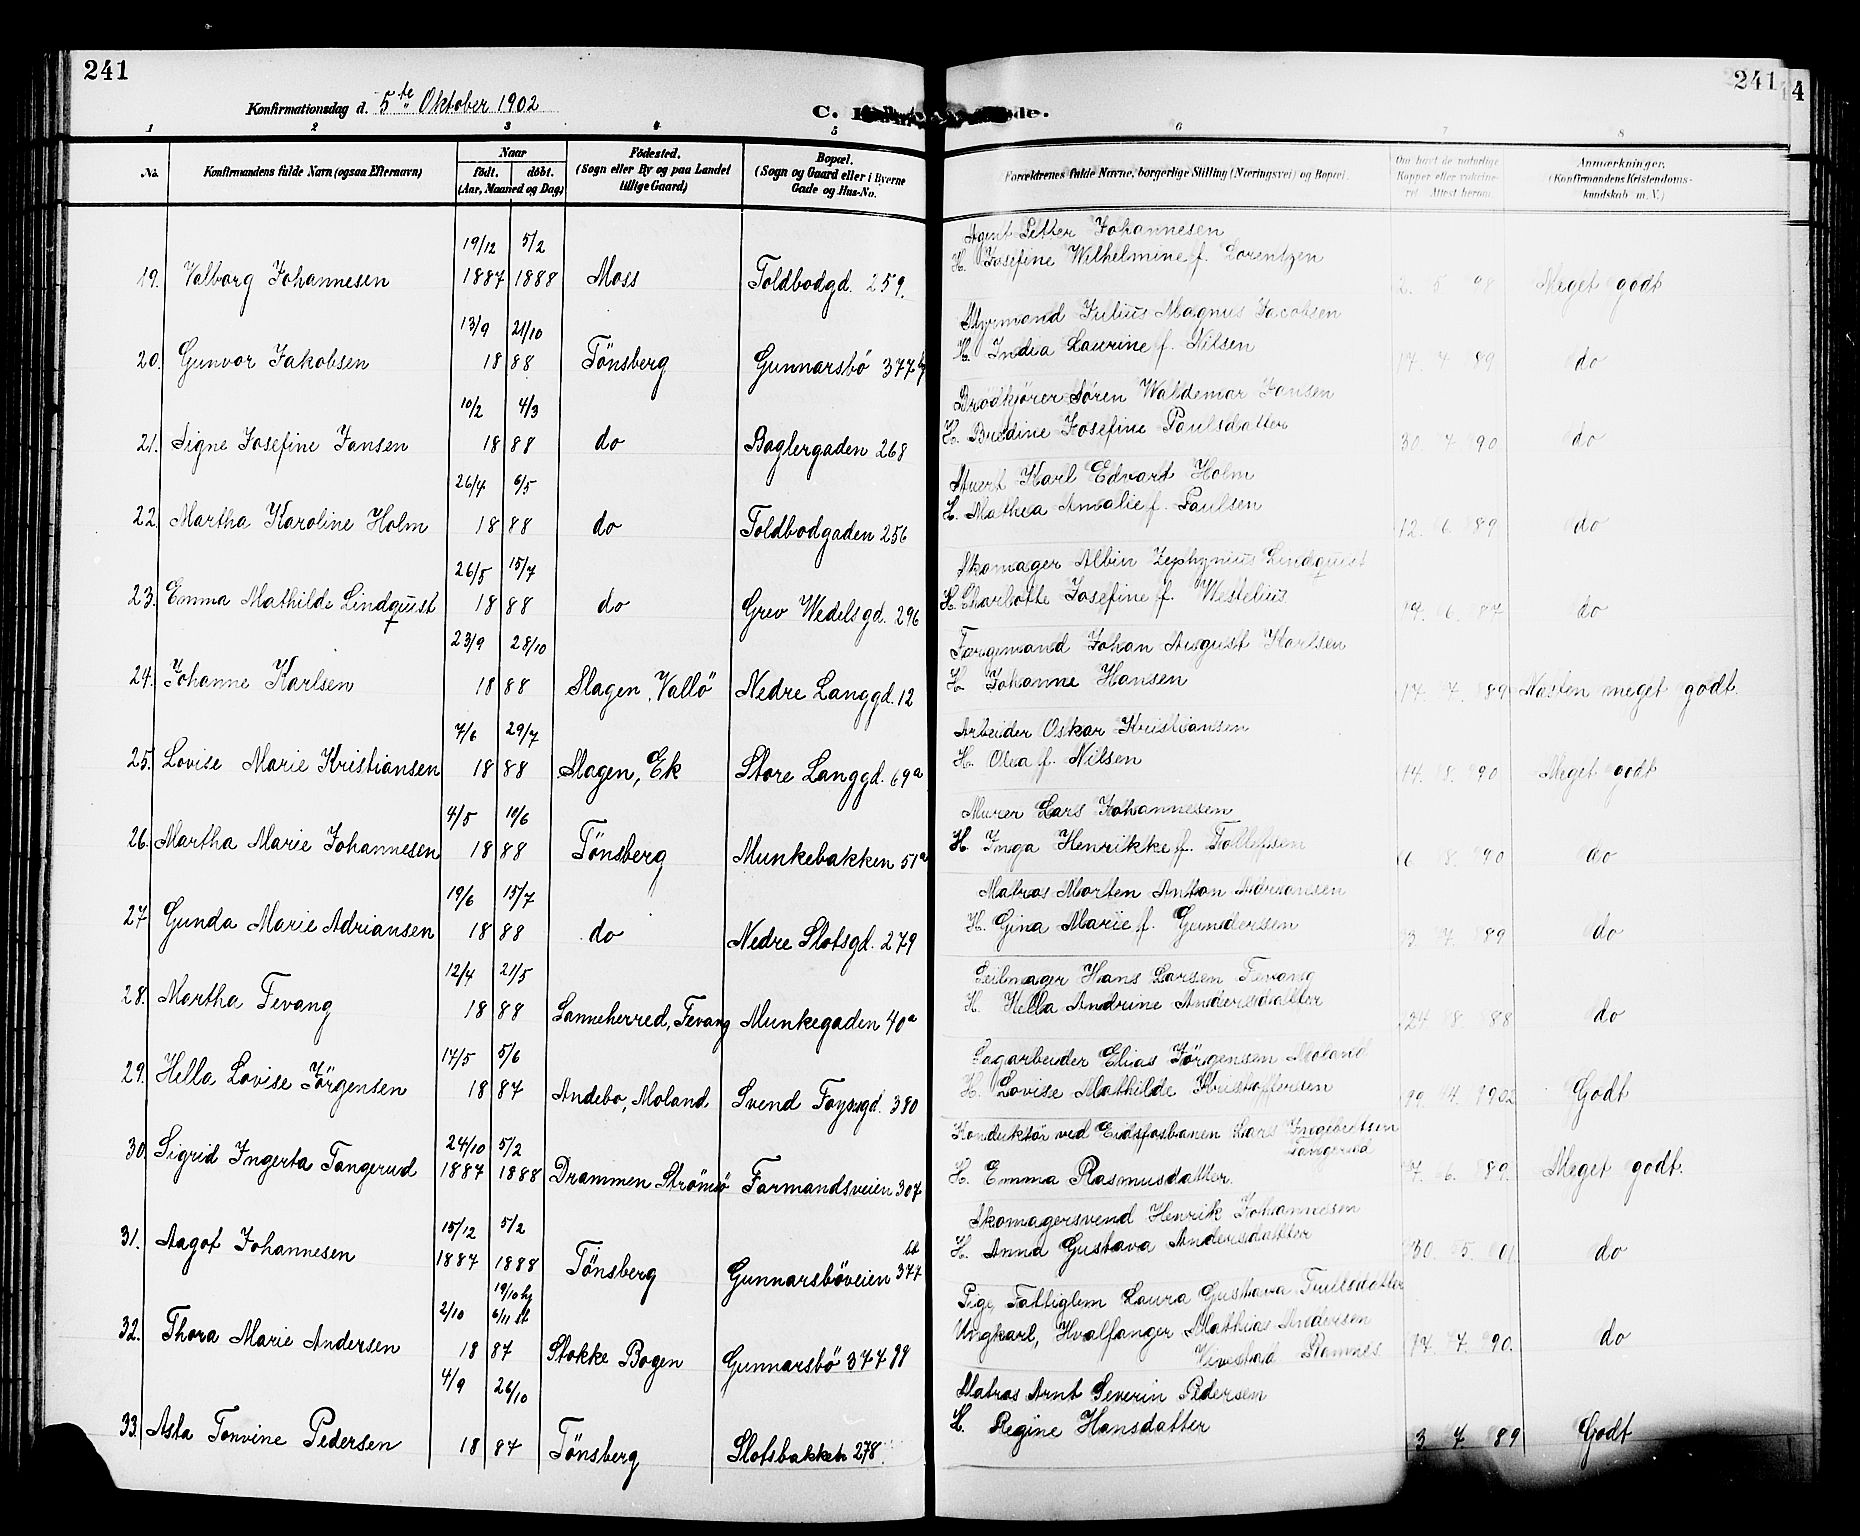 241
Konfirmationsdag d. 5te Oktober 1902
C.
241
4
1 2 3 4 5 6 7 8
No. Konfirmandens fulde Navn (ogsaa Efternavn) Naar født. døbt. (Aar, Maaned og Dag) Fødested. (Sogn eller By og paa Landet tillige Gaard) Bopæl. (Sogn og Gaard eller i Byerne Gade og Hus-No. Forældrenes fulde Navne, borgerlige Stilling (Næringsvei) og Bopæl. Om havt de naturlige Kopper eller vakcineret. Attest herom. Anmærkninger, (Konfirmandens Kristendomskundskab m. V.)
19/12 5/2 Agent Petter Johannesen
19. Valborg Johannesen 1887 1888 Moss Toldbodgd. 259. H. Josefine Wilhelmine f. Lorentzen 5 98 Meget godt
13/9 21/10 Styrmand Julius Magnus Jacobsen
20. Gunvor Jakobsen 18 88 Tönsberg Gunnarsbö 377 H. India Laurine f. Nilsen 17. 7 89 do
10/2 4/3 Brödkjörer Sören Waldemar Jansen
21. Signe Josefine Jansen 18 88 do Baglergaden 268 H. Bredine Josefine Paulsdatter 30. 7 90 do
26/4 6/5 Stuert Karl Edvart Holm
22. Martha Karoline Holm 18 88 do Toldbodgaden 256 H. Mathea Amalie f. Paulsen 12. 6. 89 do
26/5 15/7 Skomager Albin Zephynius Lindquist
23. Emma Mathilde Lindquist 18 88 do Grev Wedelsgd. 296 H. Charlotte Josefine f. Westelius 19. 6. 87 do
23/9 28/10 Johan August Karlsen
24. Johanne Karlsen 18 88 Slagen, Vallö Nedre Langgd. 12 H. Johanne Hansen 17. 7. 89 Næsten meget godt.
7/6 29/7 Arbeider Oskar Kristiansen
25. Lovise Marie Kristiansen 18 88 Slagen, Ek Store Langgd. 69a H. Olea f. Nilsen 14. 8. 90 Meget godt
4/5 10/6 Murer Lars Johannesen
26. Martha Marie Johannesen 18 88 Tönsberg Munkebakken 51a H. Inga Henrikke f. Tollefsen 6 8. 90 do
19/6 15/7 Matros Morten Anton Adriansen
27 Gunda Marie Adriansen 18 88 do Nedre Slotsgd. 279 H. Gina Marie f. Gundersen 3. 7. 89 do
12/4 21/5 Seilmager Hans Larsen Tevang
28. Martha Tevang 18 88 Sanneherred, Tevang Munkegaden 40a H. Hella Andrine Andersdatter 24. 8. 88 do
17/5 5/6 Sagarbeider Elias Jörgensen Moland
29. Hella Lovise Jörgensen 18 87 Andebo, Moland Svend Foynsgd. 380 H. Lovise Mathilde Kristoffersen Godt
24/10 5/2 Konduktör ved Eidsfosbanen Lars Ingebretsen Tangerud
30 Sigrid Ingerta Tangerud 1887 1888 Drammen Strömsö Farmandsveien 307 H. Emma Rasmusdatter 7. 6. 89. Meget godt.
15/12 5/2 Skomagersvend Henrik Johannesen
31. Aagot Johannesen 1887 1888 Tönsberg Gunnarsböveien 377 H. Anna Gustava Andersdatter 30. 5. 01 do
19/10 hj Pige, Fattiglem Laura Gustava Trulsdatter
2/10 6/11 st Ungkarl, Hvalfanger Mathias Andersen
32. Thora Marie Andersen 18 87 Stokke Bogen Gunnarsbö 377 Vivestad Ramnes 17. 7. 90. do
4/9 26/10 Matros Arnt Severin Pedersen
33. Asta Tonvine Pedersen 18 87 Tönsberg Slotsbakken 278. H. Regine Hansdatter 3 7 89 Godt